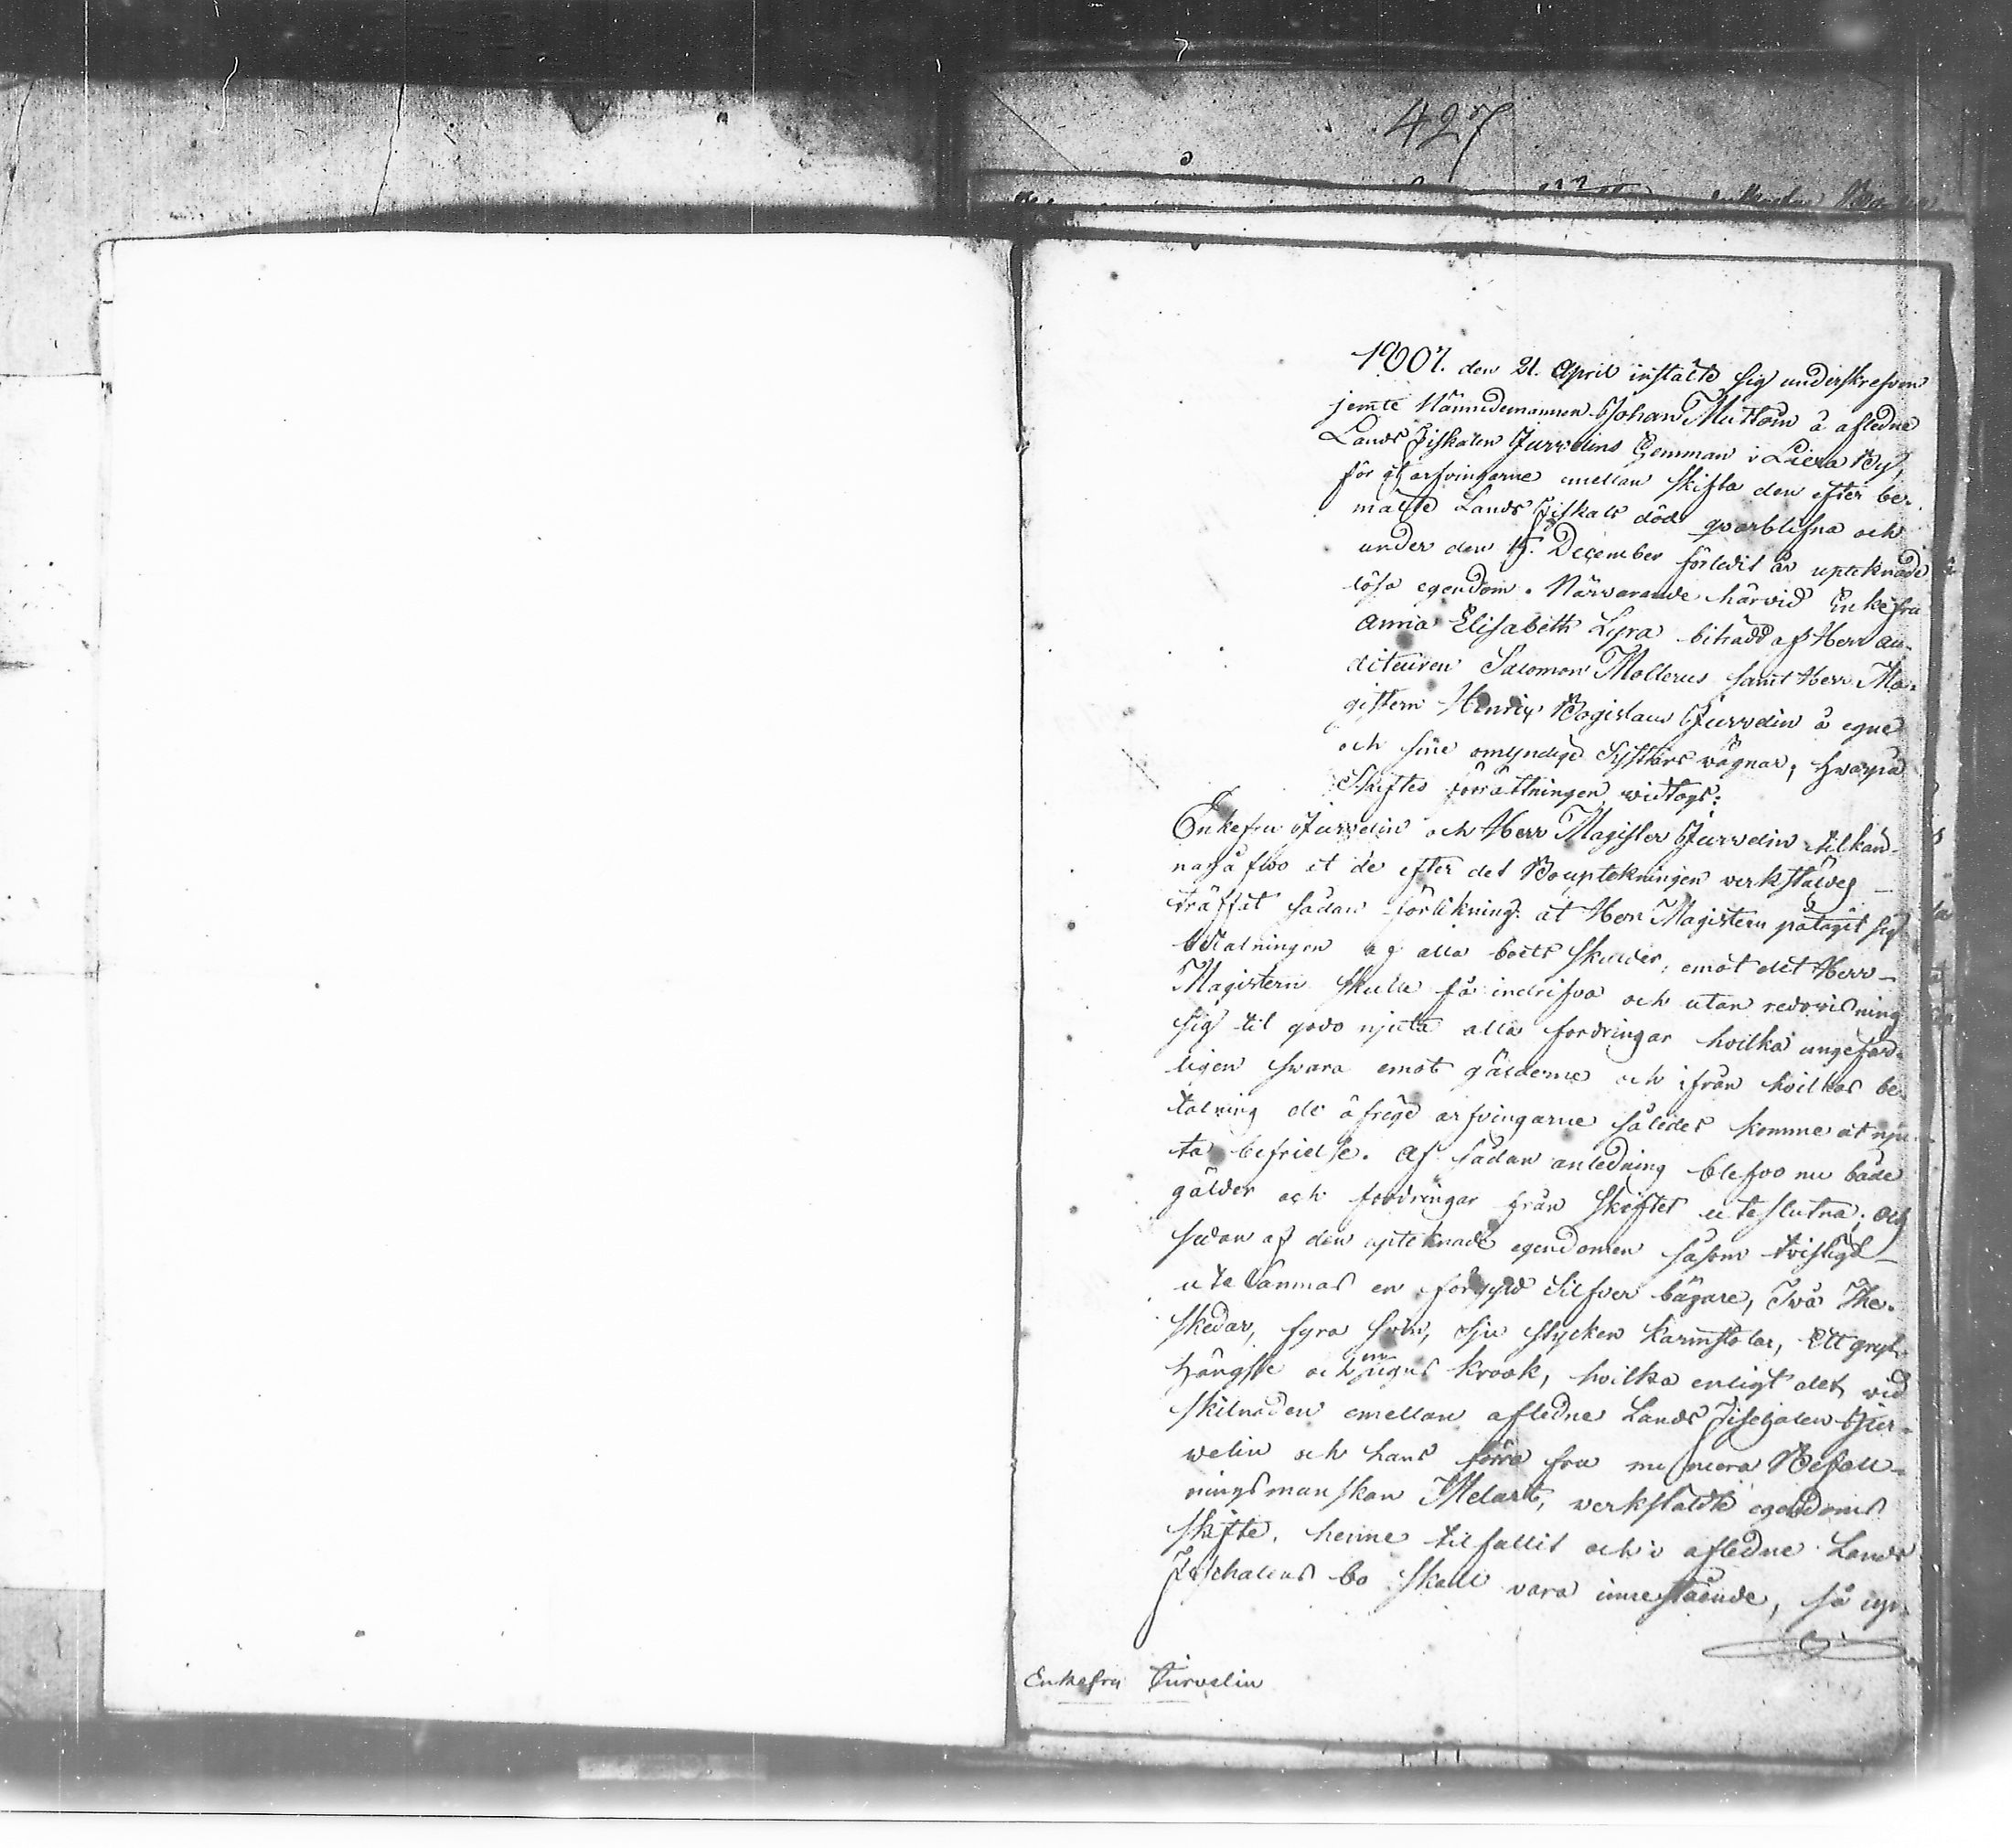 427
1807. den 21. April instälte sig underskrefven
jemte Nämndemannen Johan Mattson å afledne
Lands Fiskalen Jurvelins Hemman i Liexa By,
för at arfvingarne emellan skifta den efter be-
mälte Lands Fiskals död qvarblefna och
under den 15. December förledit år upteknade
lösa egendom. Närvarande härvid Enkefru
Anna Elisabeth Lyra biträdd af Herr Au-
diteuren Salomon Mollerus samt Herr Ma-
gistern Henrix Bogislaus Jurvelin å egne
och sine omyndige Systrars vägnar; hvarpå
Skiftes förrättningen vidtogs:
Enkefru Jurvelin och Herr Magister Jurvelin tilkän-
nagåfvo at de efter det Bouptekningen verkstäldes
träffat sådan förlikning: at Herr Magistern påtagit sig
betalningen af alla boets skulder, emot det Herr
Magistern skulle få indrifva och utan redovisning
sig til godo njuta alla fordringar hvilka ungefär-
ligen svara emot gälderne och ifrån hvilkas be-
talning de öfrige arfvingarne således komme at nju-
ta befrielse. Af sådan anledning blefvo nu både
gälder och fordringar från skiftet uteslutna; och
sedan af den upteknade egendomen såsom tvistigt
utelämnas en förgyld Silfver bägare, Två The-
skedar, fyra Svin, sju stycken karmstolar, Ett gryt-
hängsle och en ugns krook, hvilka enligt det, vid
skilnaden emellan afledne Lands Fischalen Jur-
velin och hans förra fru nu mera Befall-
ningsmanskan Melart, verkstälte egendoms
skifte, henne tilfallit och i afledne Lands
Fischalens bo skall vara innestående, så igr-
Enkefru Jurvelin